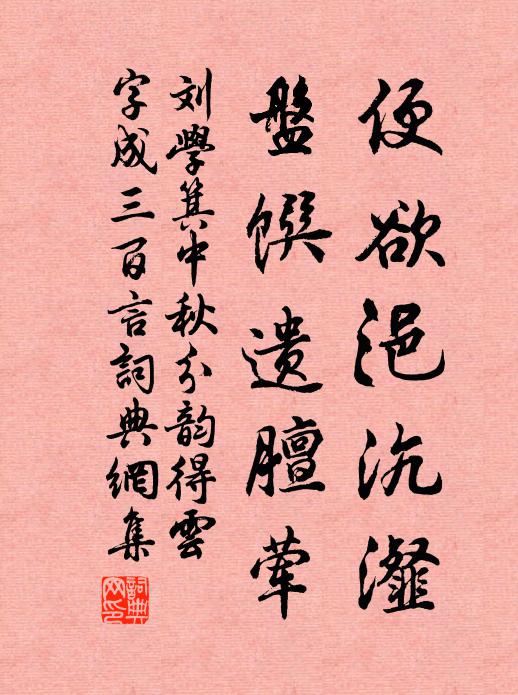 便欲浥沆瀣
盤馔遗膻荤
刘學箕中秋分韵得雲
字成三百言詞典網集
詞典网印